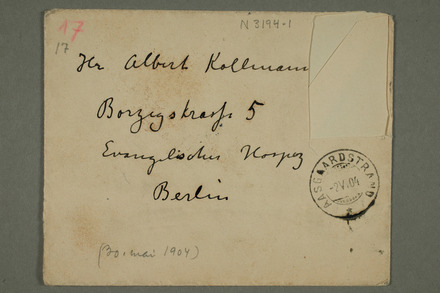 N 3194-1
17
17
Hr Albert Kollmann
Borzigstrasse 5
Evangelisches Hospiz
Berlin
AASGAARDSTRAND
-2 V 04
(30. mai 1904)